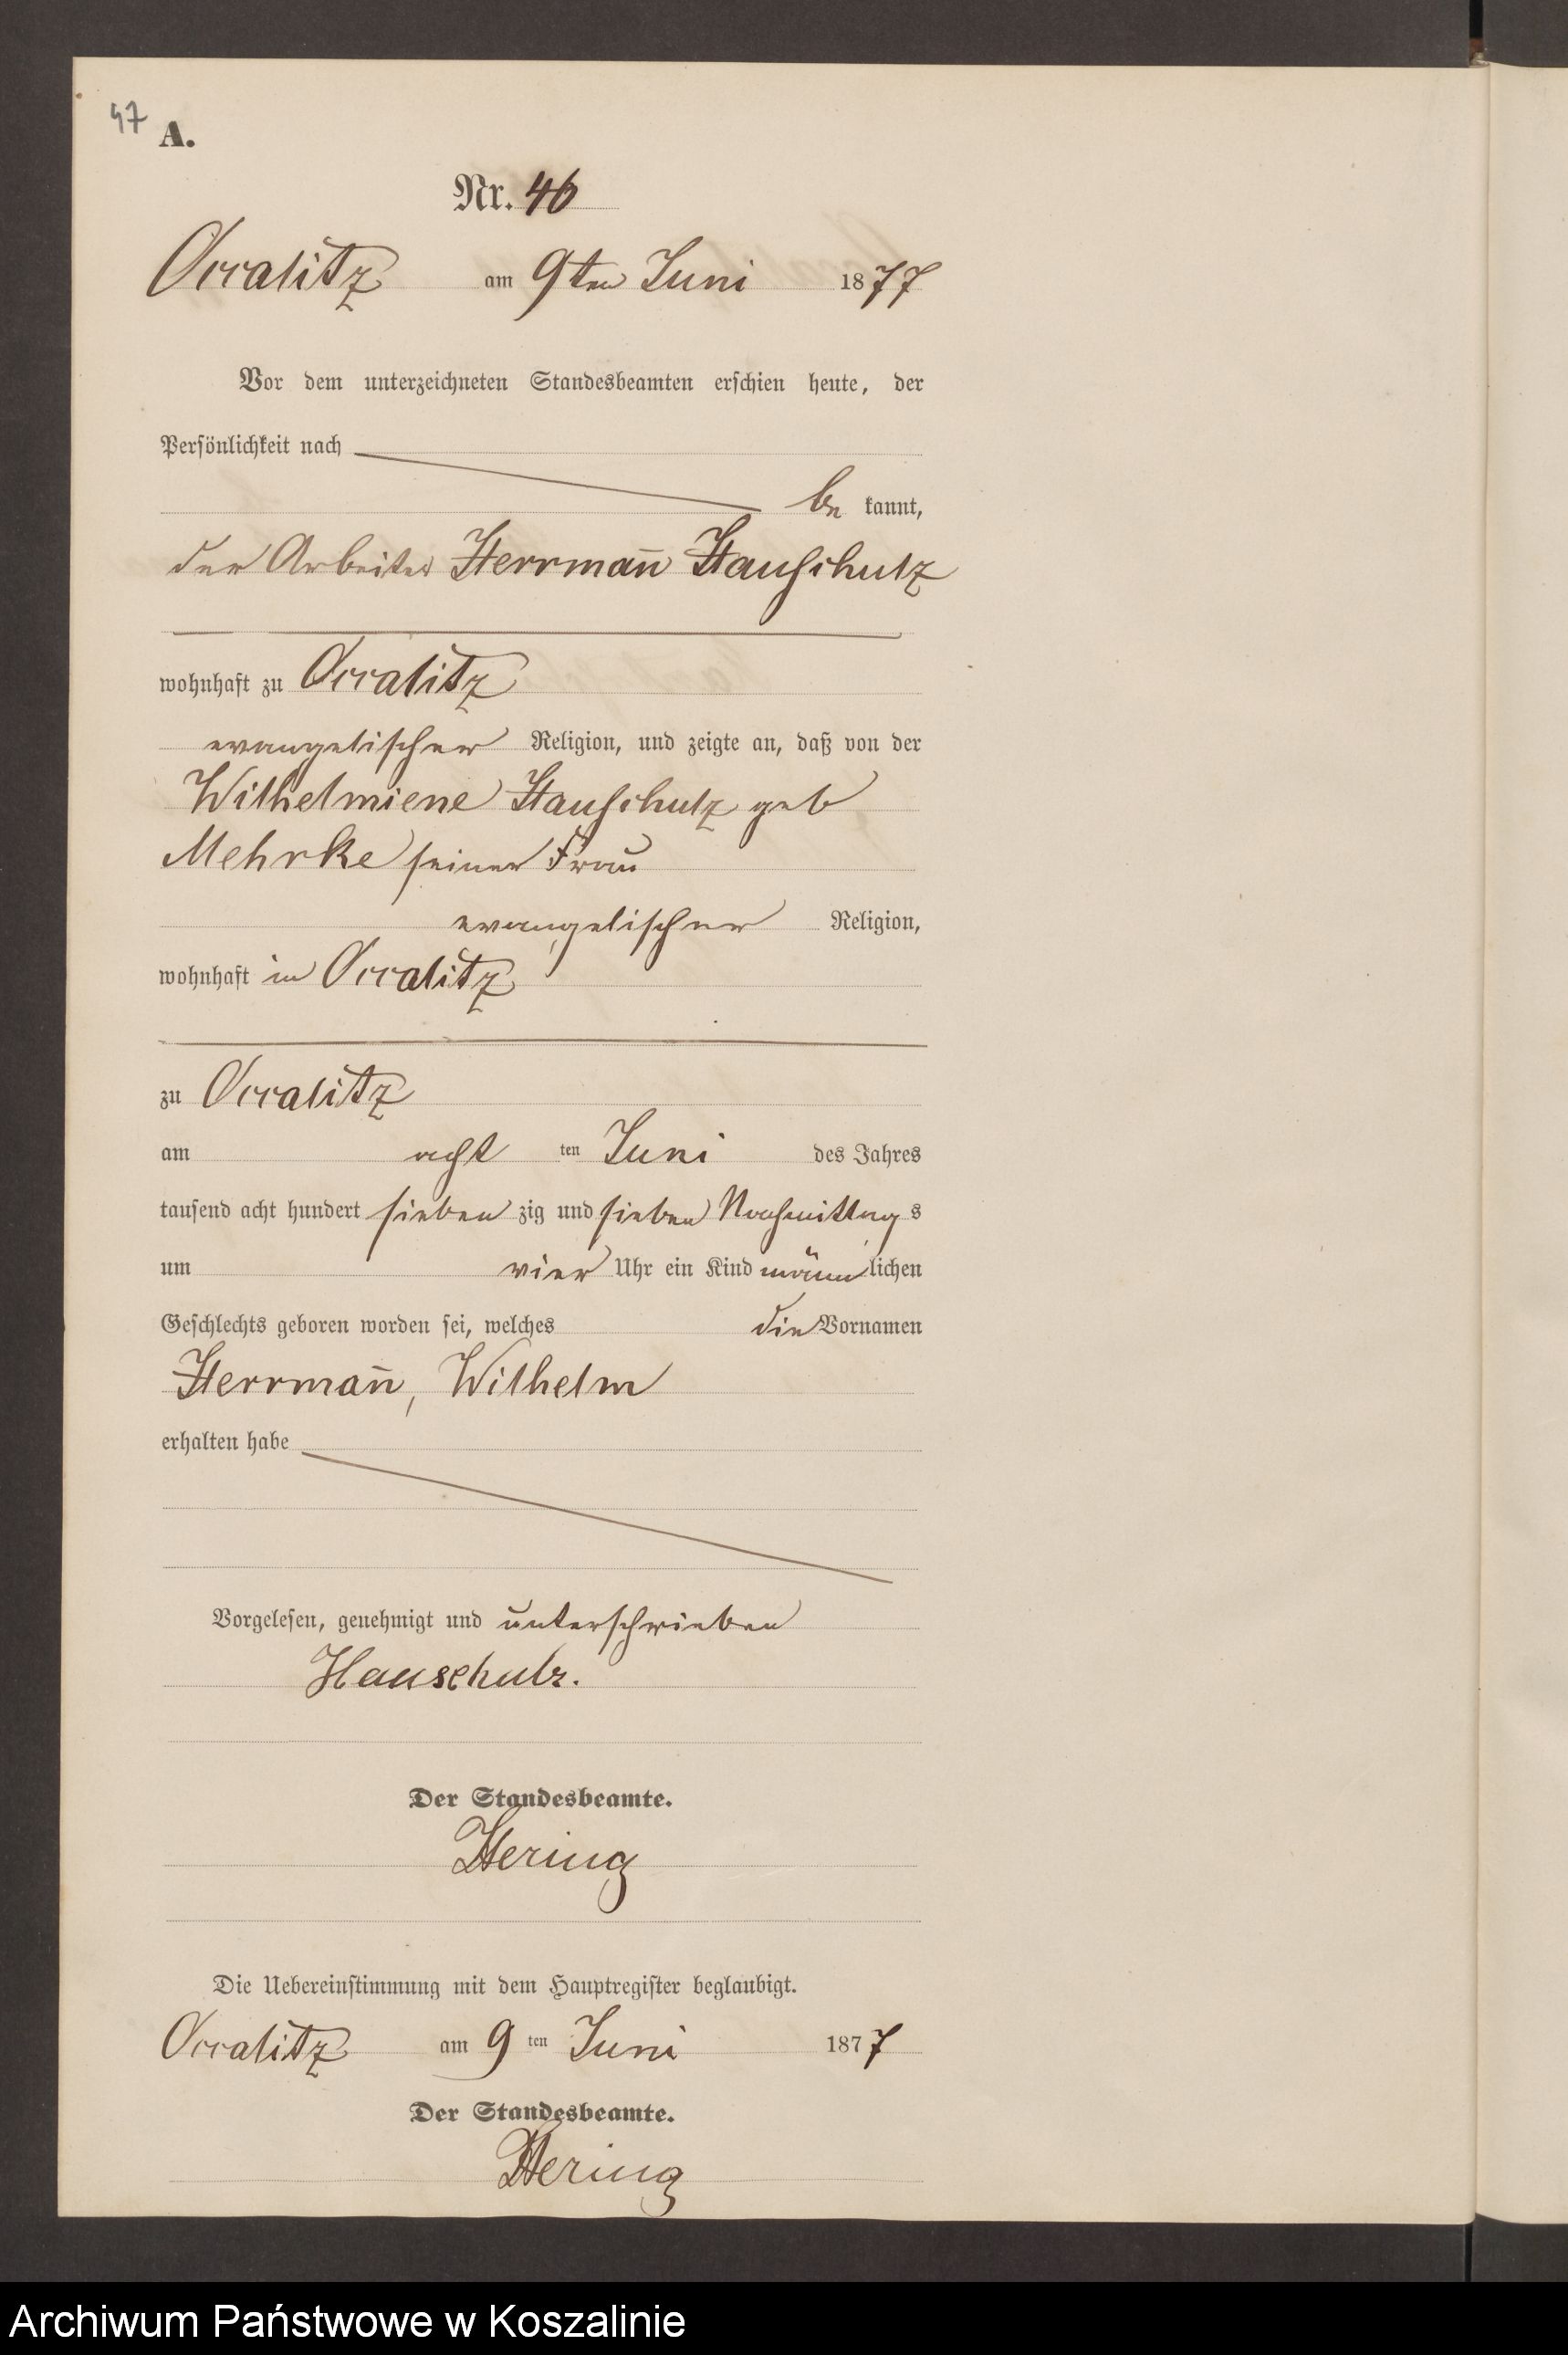 47 A.
Nr. 46
Occalitz am 9ten Juni 1877
Vor dem unterzeichneten Standesbeamten erschien heute, der
Persönlichkeit nach
be kannt,
der Arbeiter Herrman̅ Hauschulz
wohnhaft zu Occalitz
evangelischer Religion, und zeigte an, daß von der
Wilhelmiene Hauschulz geb
Mehrke seiner Frau
evangelischer Religion,
wohnhaft in Occalitz
zu Occalitz
am acht ten Juni des Jahres
tausend acht hundert sieben zig und sieben Nachmittag s
um vier Uhr ein Kind männ lichen
Geschlechts geboren worden sei, welches die Vornamen
Herrman̅, Wilhelm
erhalten habe
Vorgelesen, genehmigt und unterschrieben
Hauschulz.
Der Standesbeamte.
Hering
Die Uebereinstimmung mit dem Hauptregister beglaubigt.
Occalitz am 9 ten Juni 1877
Der Standesbeamte.
Hering
Archiwum Państwowe w Koszalinie